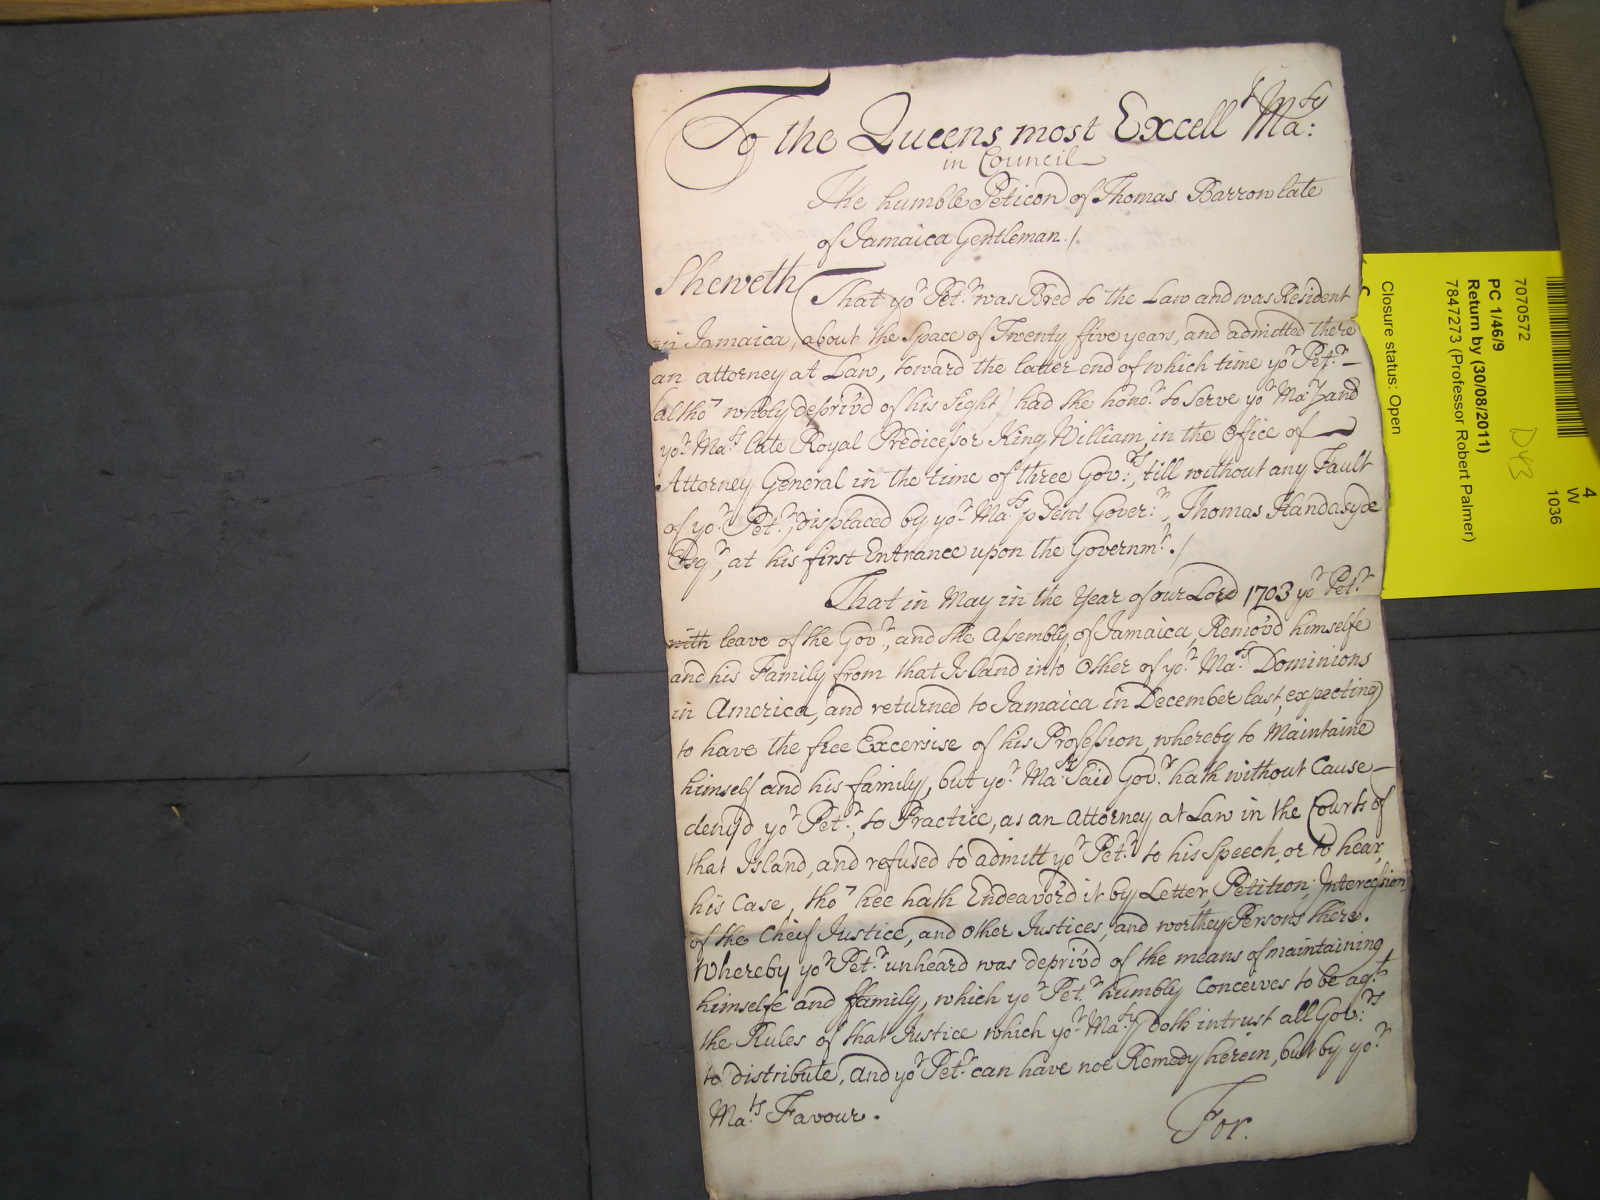 To the Queens most Excell^t Ma:^ty
in Council
The humble Peticon of Thomas Barrow late
of Jamaica Gentleman./.
Sheweth That yo^r Pet:^r was Bred to the Law and was Resident
in Jamaica, about the Space of Twenty five years, and admitted there
an attorney at Law, toward the latter end of which time yo^r Pet:^r —
(altho' wholy depriv'd of his Sight) had the hono:^r to Serve yo^r Ma:^ty and
yo:^r Ma:^ts late Royal Predicessor King William, in the Office of
Attorney General in the time of three Gov:^rs, till without any Fault
of yo^r Pet:^r, displaced by yo^r Ma:^ts p'sent Gover:^r, Thomas Handasyde
Esq^r, at his first Entrance upon the Governm^t./
That in May in the Year of our Lord 1703 yo^r Pet:^r
with leave of the Gov:^r, and the Assembly of Jamaica, Remov'd himselfe
and his Family from that Island into Other of yo:^r Ma:^ts Dominions
in America, and returned to Jamaica in December last, expecting
to have the free Excersise of his Profession, whereby to Maintaine
himself and his family, but yo:^r Ma:^ts Said Gov:^r hath without Cause —
deny'd yo^r Pet:^r, to Practice, as an Attorney at Law in the Courts of
that Island, and refused to admitt yo^r Pet:^r to his Speech, or to hear,
his Case, tho' hee hath Endeavor'd it by Letter, Petition, Intercession
of the Cheif Justice, and Other Justices, and worthey Persons there.
Whereby yo^r Pet:^r unheard was depriv'd of the means of maintaining
himselfe and family, which yo^r Pet:^r humbly Conceives to be ag:^t
the Rules of that Justice which yo^r Ma:^ty doth intrust all Gov:^rs
to distribute, And yo^r Pet:^r can have noe Remedy herein, but by yo:^r
Ma:^ts Favour.
For.
4
W
1036
7070572
D43
PC 1/46/9
Return by (30/08/2011)
7847273 (Professor Robert Palmer)
Closure status: Open